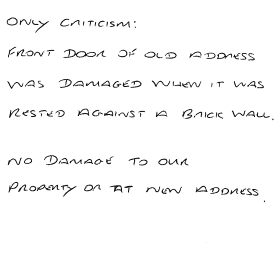 ONLY CRITICISM:
FRONT DOOR OF OLD ADDRESS
WAS DAMAGED WHEN IT WAS
RESTED AGAINST A BRICK WALL.
NO DAMAGE TO OUR
PROPERTY OR AT NEW ADDRESS.